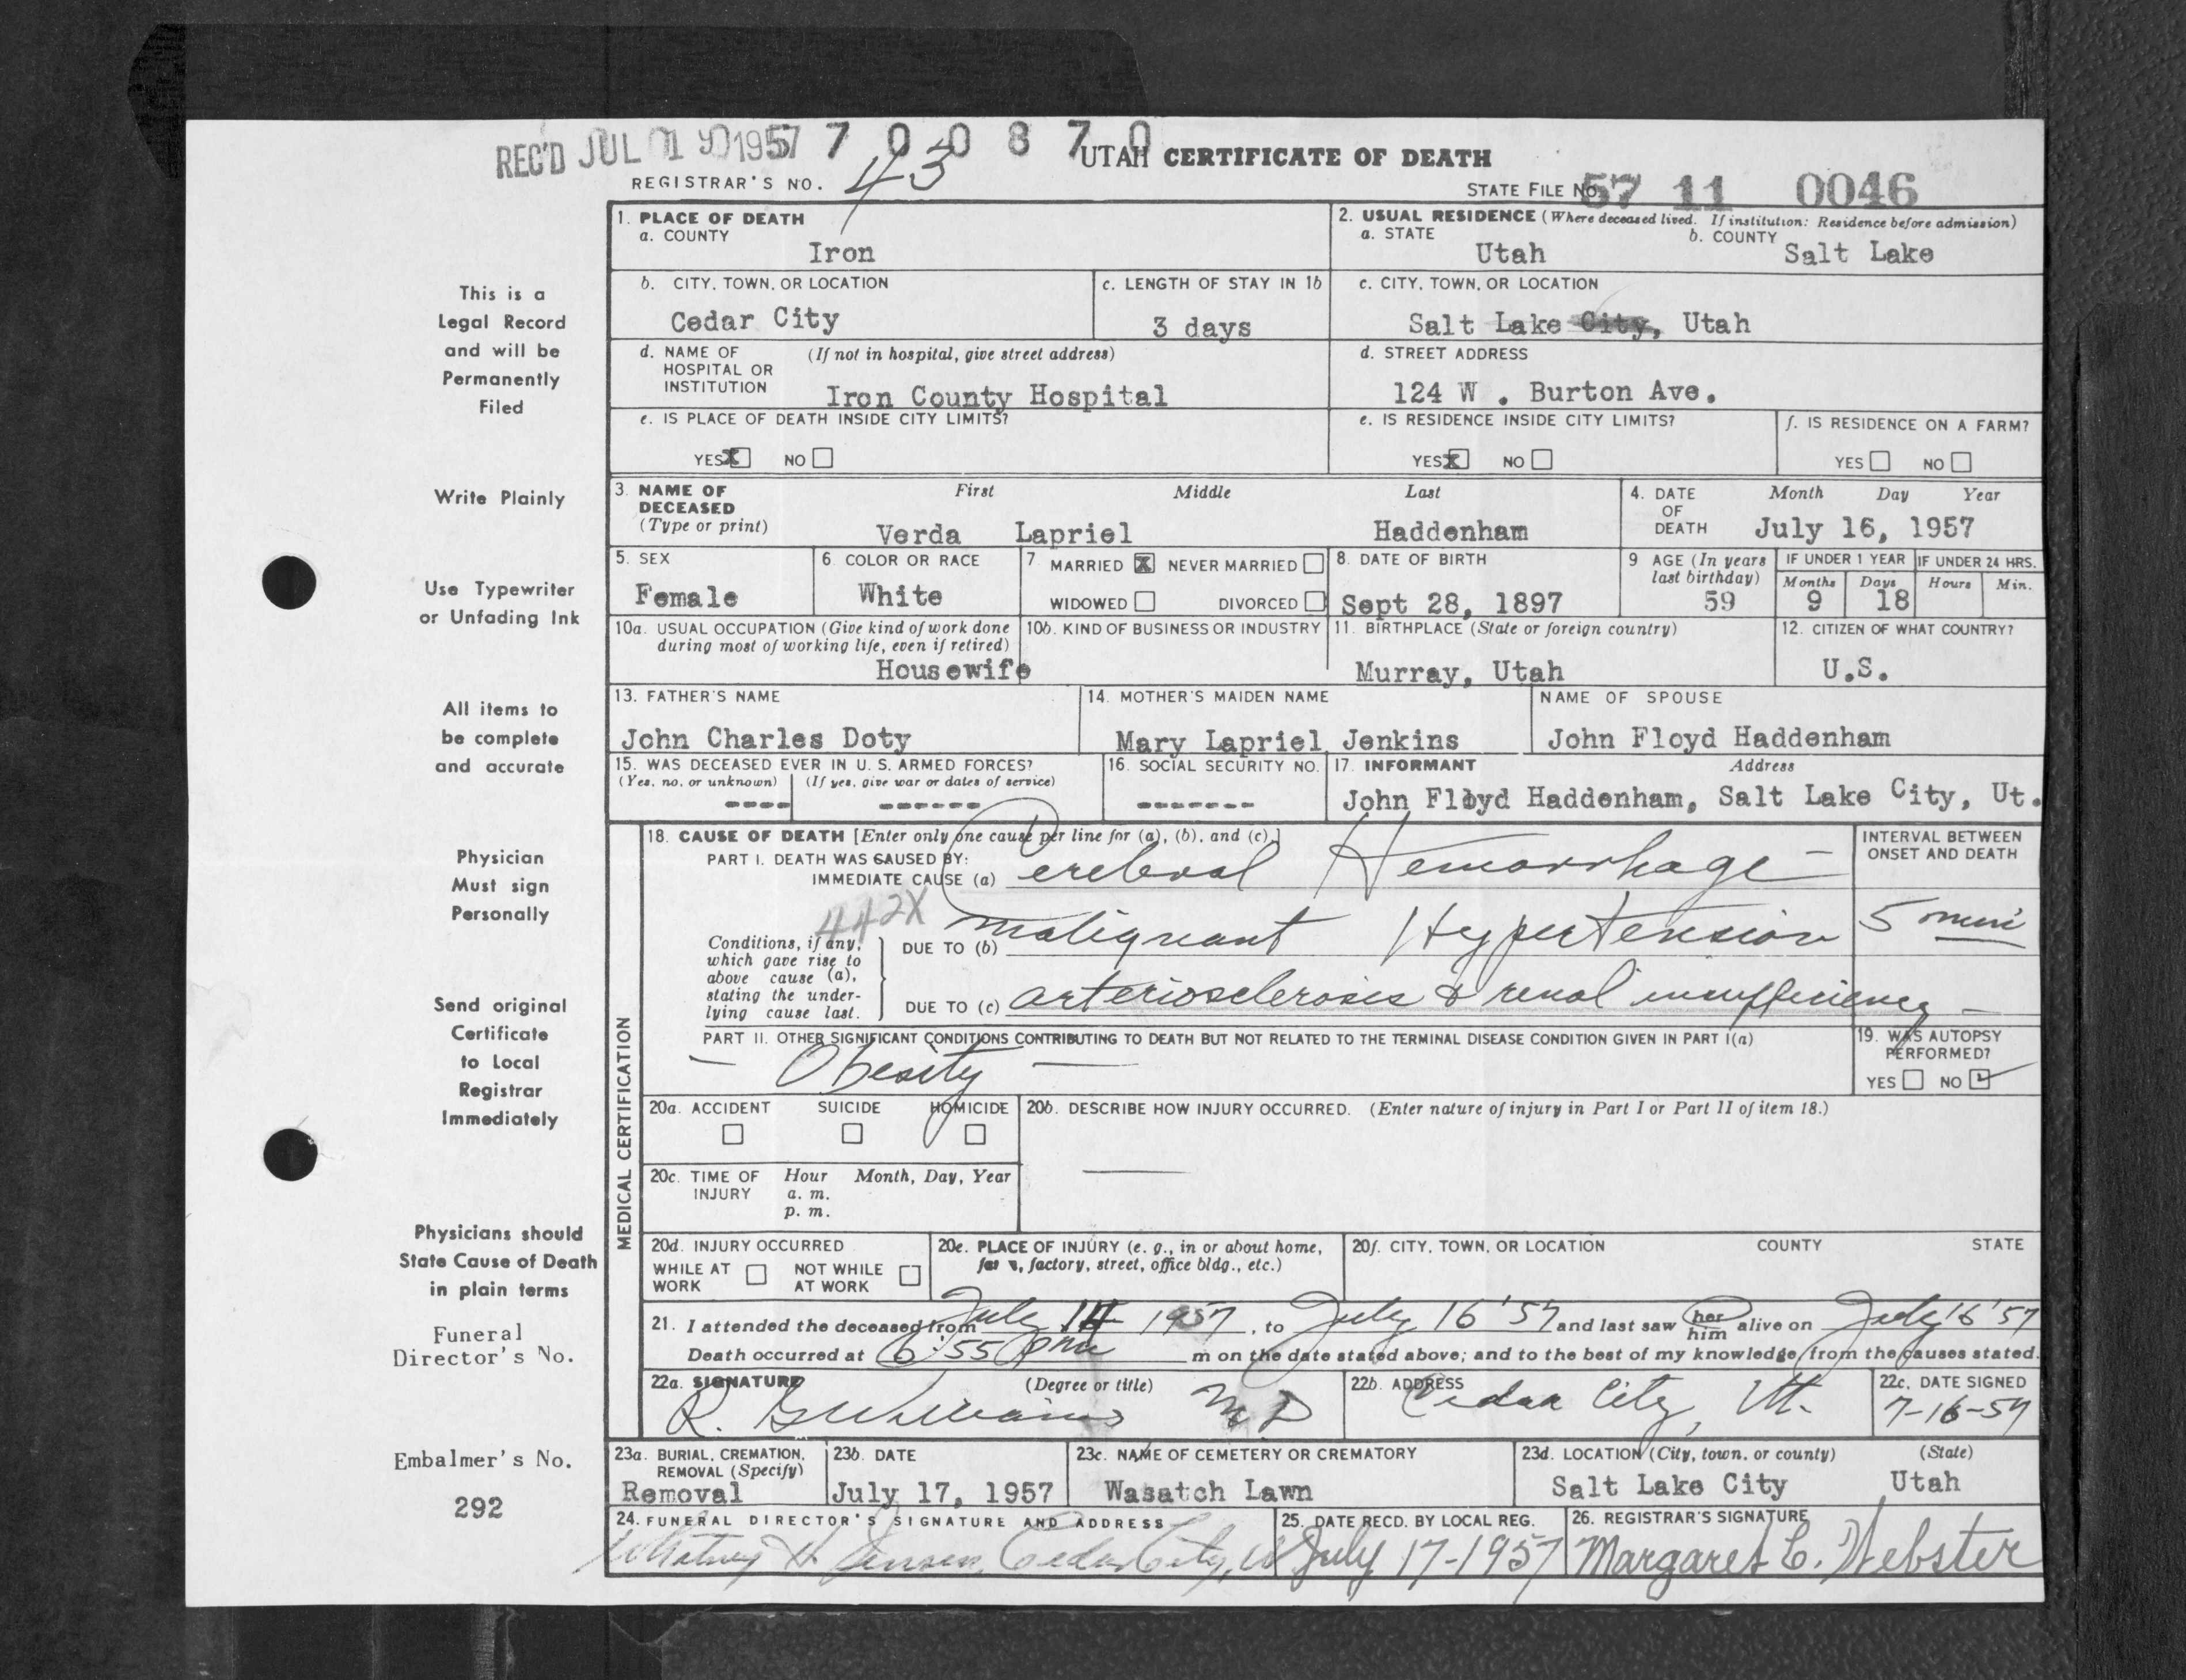 REC'D JUL 19 1957 7 0 0 8 7 0
UTAH CERTIFICATE OF DEATH
REGISTRAR'S NO. 43
STATE FILE NO. 57 11 0046
1. PLACE OF DEATH
a. COUNTY
Iron
2. USUAL RESIDENCE (Where deceased lived. If institution: Residence before admission)
a. STATE b. COUNTY
Utah Salt Lake
b. CITY, TOWN, OR LOCATION
Cedar City
c. LENGTH OF STAY IN 1b
3 days
c. CITY, TOWN, OR LOCATION
Salt Lake City, Utah
d. NAME OF HOSPITAL OR INSTITUTION (If not in hospital, give street address)
Iron County Hospital
d. STREET ADDRESS
124 W . Burton Ave.
e. IS PLACE OF DEATH INSIDE CITY LIMITS?
YES X NO
e. IS RESIDENCE INSIDE CITY LIMITS?
YES X NO
f. IS RESIDENCE ON A FARM?
YES NO
3. NAME OF DECEASED (Type or print) First Middle Last
Verda Lapriel Haddenham
4. DATE OF DEATH Month Day Year
July 16, 1957
5. SEX
Female
6. COLOR OR RACE
White
7 MARRIED X NEVER MARRIED
WIDOWED DIVORCED
8. DATE OF BIRTH
Sept 28, 1897
9 AGE (In years last birthday)
59
IF UNDER 1 YEAR IF UNDER 24 HRS.
Months Days Hours Min.
9 18
10a. USUAL OCCUPATION (Give kind of work done during most of working life, even if retired)
Housewife
10b. KIND OF BUSINESS OR INDUSTRY
11. BIRTHPLACE (State or foreign country)
Murray, Utah
12. CITIZEN OF WHAT COUNTRY?
U.S.
13. FATHER'S NAME
John Charles Doty
14. MOTHER'S MAIDEN NAME
Mary Lapriel Jenkins
NAME OF SPOUSE
John Floyd Haddenham
15. WAS DECEASED EVER IN U. S. ARMED FORCES?
(Yes, no, or unknown) (If yes, give war or dates of service)
---- ------
16. SOCIAL SECURITY NO.
-------
17. INFORMANT Address
John Floyd Haddenham, Salt Lake City, Ut.
MEDICAL CERTIFICATION
18. CAUSE OF DEATH [Enter only one cause per line for (a), (b), and (c).]
PART I. DEATH WAS CAUSED BY:
IMMEDIATE CAUSE (a) Cerebral Hemorrhage -
INTERVAL BETWEEN ONSET AND DEATH
5 min
442X
Conditions, if any, which gave rise to above cause (a), stating the underlying cause last.
DUE TO (b) malignant Hypertension
DUE TO (c) arteriosclerosis & renal insufficiency -
PART II. OTHER SIGNIFICANT CONDITIONS CONTRIBUTING TO DEATH BUT NOT RELATED TO THE TERMINAL DISEASE CONDITION GIVEN IN PART I(a)
- Obesity -
19. WAS AUTOPSY PERFORMED?
YES NO ✓
20a. ACCIDENT SUICIDE HOMICIDE
20b. DESCRIBE HOW INJURY OCCURRED. (Enter nature of injury in Part I or Part II of item 18.)
20c. TIME OF INJURY Hour Month, Day, Year
a. m.
p. m.
20d. INJURY OCCURRED
WHILE AT WORK NOT WHILE AT WORK
20e. PLACE OF INJURY (e. g., in or about home, farm, factory, street, office bldg., etc.)
20f. CITY, TOWN, OR LOCATION COUNTY STATE
21. I attended the deceased from July 14 1957, to July 16 '57 and last saw her him alive on July 16 '57
Death occurred at 6:55 pm m on the date stated above; and to the best of my knowledge, from the causes stated.
22a. SIGNATURE (Degree or title)
R. G Williams M D
22b. ADDRESS
Cedar City, Ut.
22c. DATE SIGNED
7-16-57
23a. BURIAL, CREMATION, REMOVAL (Specify)
Removal
23b. DATE
July 17, 1957
23c. NAME OF CEMETERY OR CREMATORY
Wasatch Lawn
23d. LOCATION (City, town, or county) (State)
Salt Lake City Utah
24. FUNERAL DIRECTOR'S SIGNATURE AND ADDRESS
Whitney H. Jensen, Cedar City, U
25. DATE RECD. BY LOCAL REG.
July 17-1957
26. REGISTRAR'S SIGNATURE
Margaret C. Webster
This is a
Legal Record
and will be
Permanently
Filed
Write Plainly
Use Typewriter
or Unfading Ink
All items to
be complete
and accurate
Physician
Must sign
Personally
Send original
Certificate
to Local
Registrar
Immediately
Physicians should
State Cause of Death
in plain terms
Funeral
Director's No.
Embalmer's No.
292